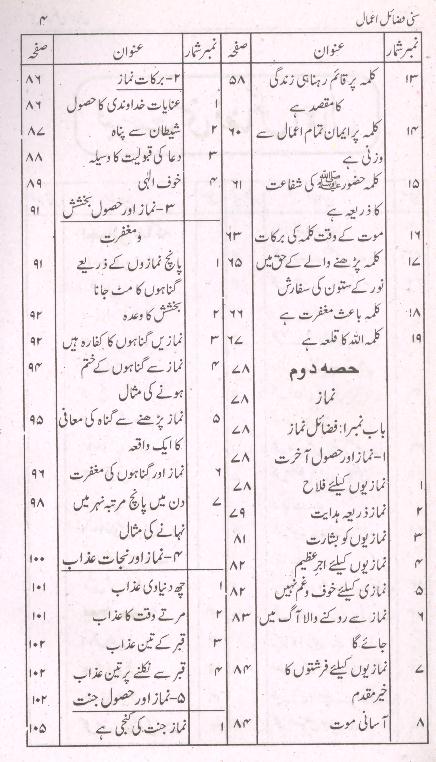 سنی فضائل اعمال ۴
نمبر شمار عنوان صفحہ
۱۳ کلمہ پر قائم رہنا ہی زندگی ۵۸
کا مقصد ہے
۱۴ کلمہ پر ایمان تمام اعمال سے ۶۰
وزنی ہے
۱۵ کلمہ حضور ﷺ کی شفاعت ۶۱
کا ذریعہ ہے
۱۶ موت کے وقت کلمہ کی برکات ۶۳
۱۷ کلمہ پڑھنے والے کے حق میں ۶۵
نور کے ستون کی سفارش
۱۸ کلمہ باعث مغفرت ہے ۶۶
۱۹ کلمہ اللہ کا قلعہ ہے ۶۷
حصہ دوم ۷۸
نماز ۷۸
باب نمبر۱: فضائل نماز ۷۸
۱-نماز اور حصول آخرت ۷۸
۱ نمازیوں کیلئے فلاح ۷۸
۲ نماز ذریعہ ہدایت ۷۹
۳ نمازیوں کو بشارت ۸۱
۴ نمازیوں کیلئے اجر عظیم ۸۲
۵ نمازی کیلئے خوف و غم نہیں ۸۲
۶ نماز سے روکنے والا آگ میں ۸۳
جائے گا
۷ نمازیوں کیلئے فرشتوں کا ۸۴
خیر مقدم
۸ آسانی موت ۸۴
نمبر شمار عنوان صفحہ
۲-برکات نماز ۸۶
۱ عنایات خداوندی کا حصول ۸۶
۲ شیطان سے پناہ ۸۷
۳ دعا کی قبولیت کا وسیلہ ۸۸
۴ خوف الٰہی ۸۹
۳-نماز اور حصول بخشش ۹۱
و مغفرت
۱ پانچ نمازوں کے ذریعے ۹۱
گناہوں کا مٹ جانا
۲ بخشش کا وعدہ ۹۲
۳ نمازیں گناہوں کا کفارہ ہیں ۹۲
۴ نماز سے گناہوں کے ختم ۹۴
ہونے کی مثال
۵ نماز پڑھنے سے گناہ کی معافی ۹۵
کا ایک واقعہ
۶ نماز اور گناہوں کی مغفرت ۹۶
۷ دن میں پانچ مرتبہ نہر میں ۹۸
نہانے کی مثال
۴-نماز اور نجات عذاب ۱۰۰
۱ چھ دنیاوی عذاب ۱۰۱
۲ مرتے وقت کا عذاب ۱۰۱
۳ قبر کے تین عذاب ۱۰۲
۴ قبر سے نکلنے پر تین عذاب ۱۰۲
۵-نماز اور حصول جنت ۱۰۲
۱ نماز جنت کی کنجی ہے ۱۰۵